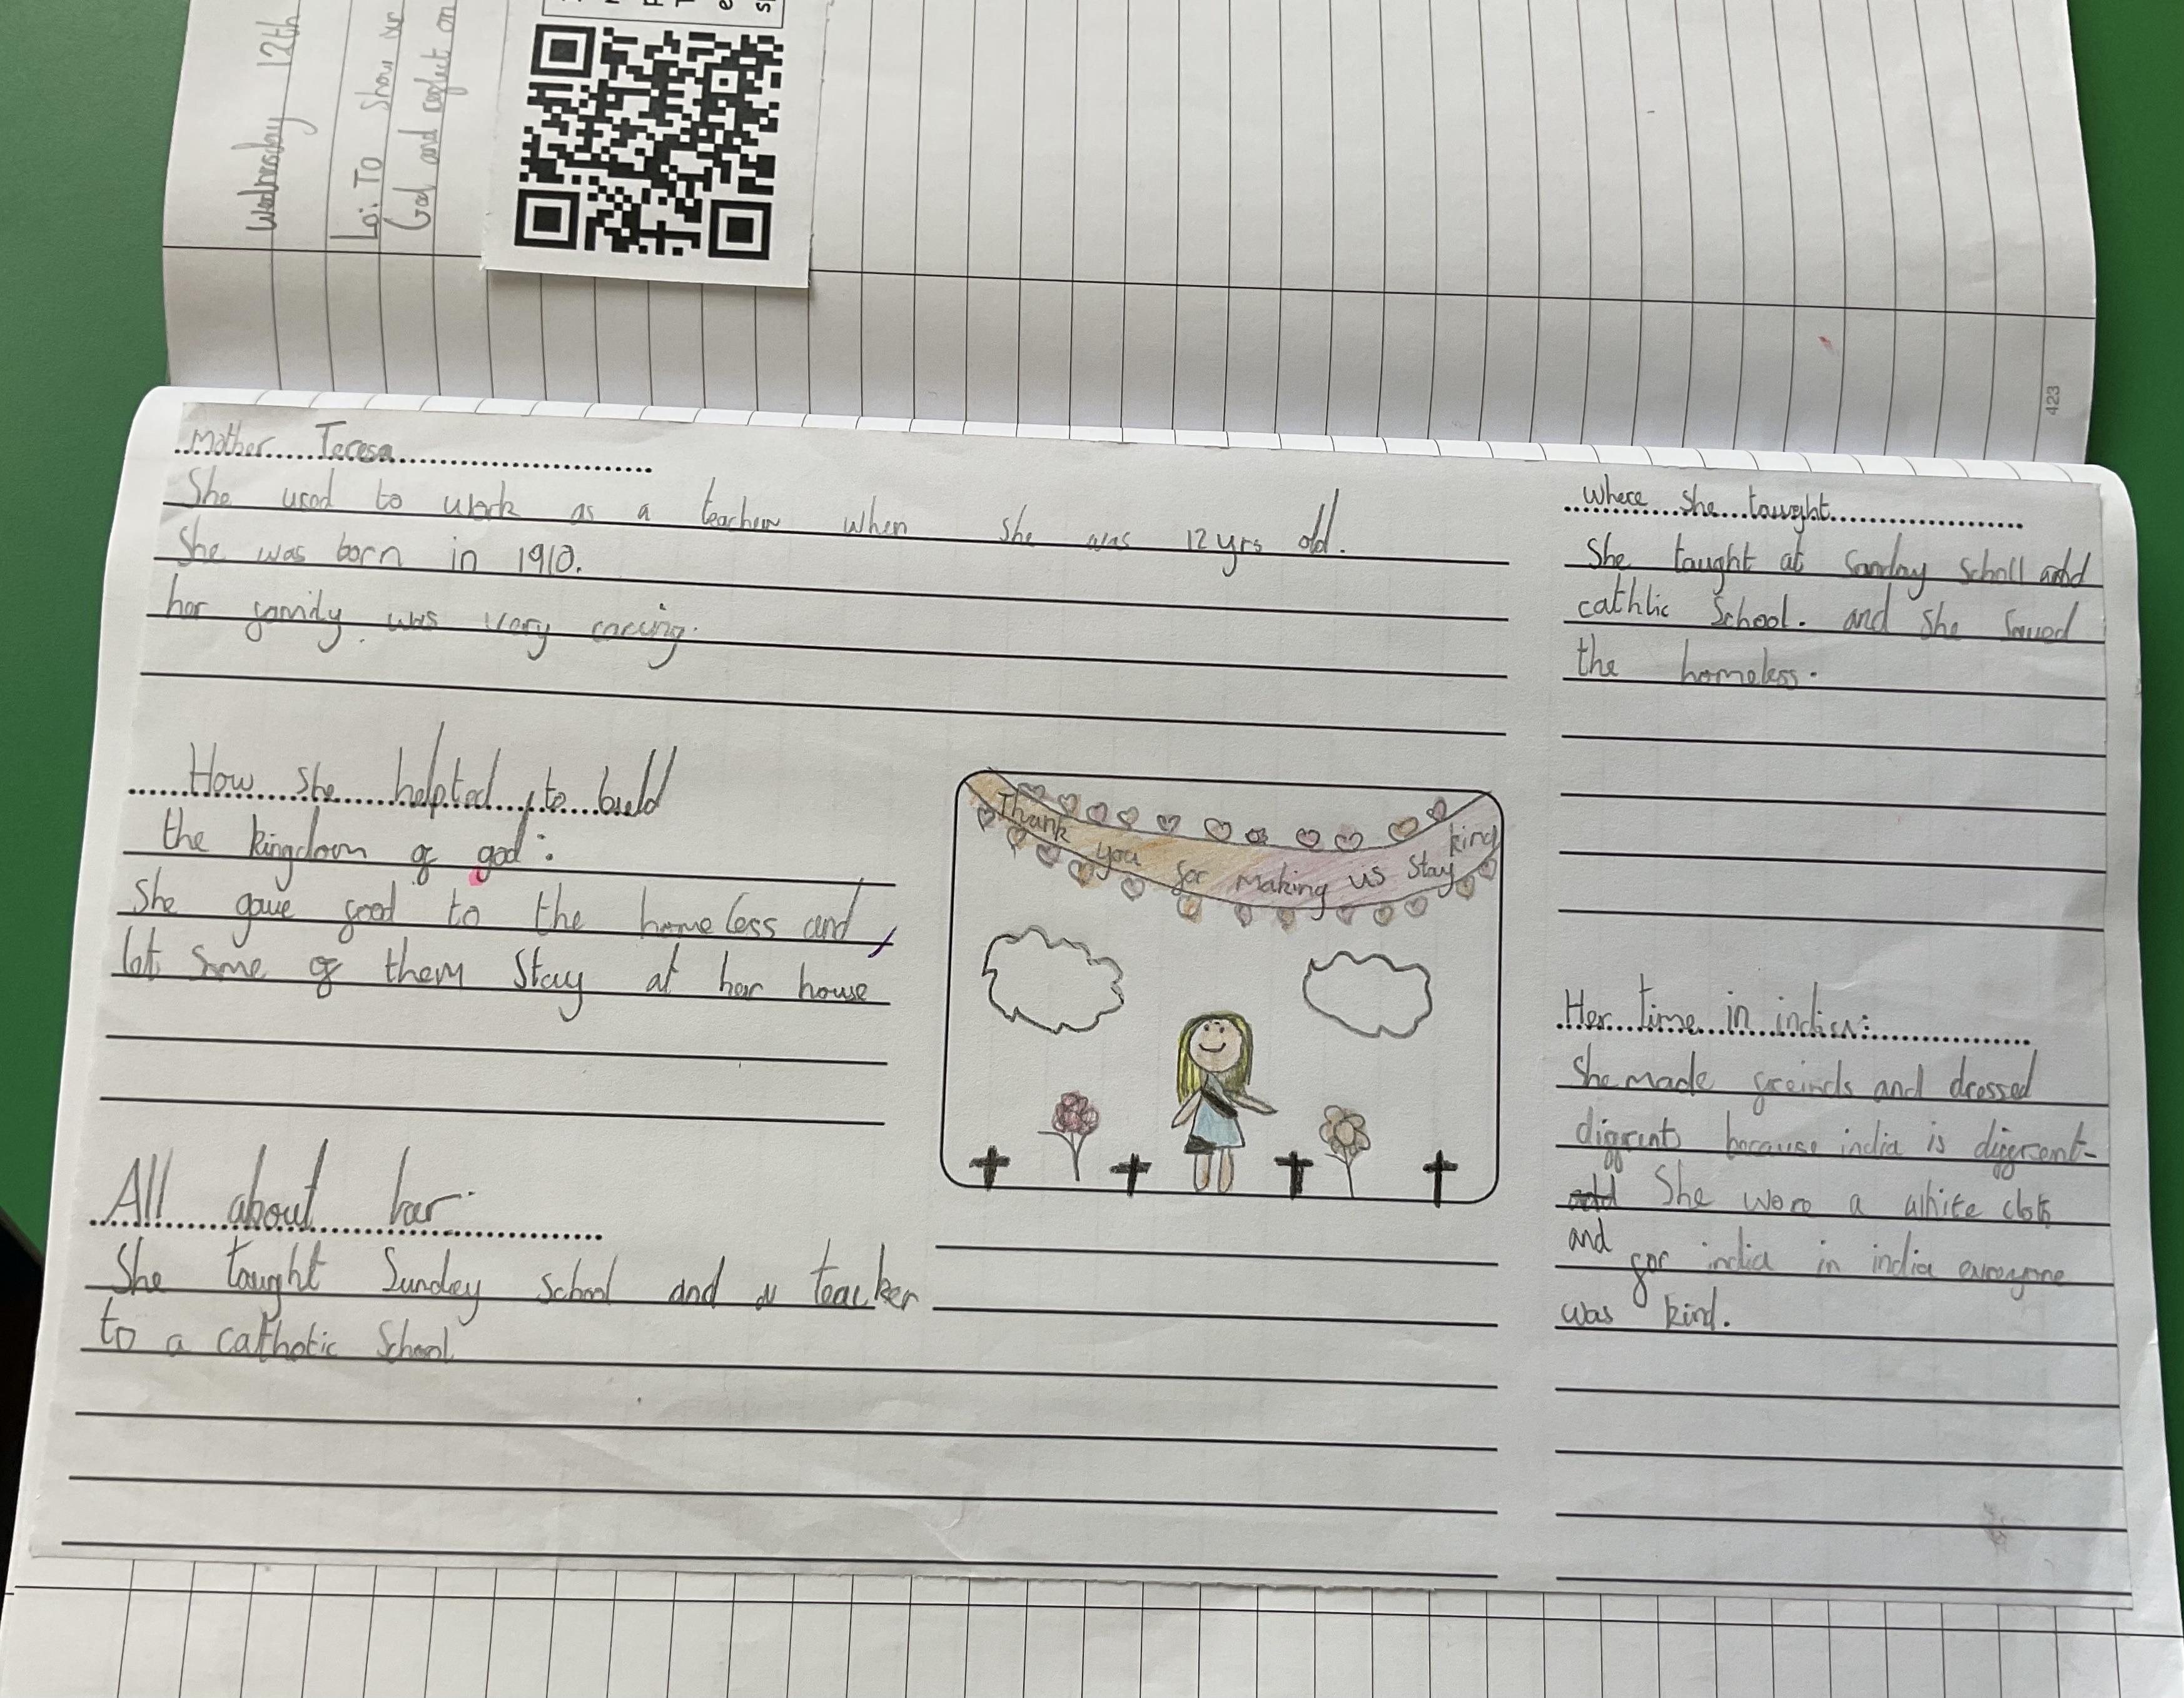 Wednesday 12th
Lo: To show ur
God and reflect on
423
Mother Teresa
She used to work as a teacher when she was 12yrs old.
She was born in 1910.
her family was very caring.
How she helpted to build
the kingdom of god:
She gave food to the homeless and
let some of them stay at her house
All about her:
She taught Sunday school and a teacker
to a catholic School
Thank you for making us stay kind
where she tawght
She taught at Sanday scholl and
cathlic School. and she saved
the homeless.
Her time in india:
She made freinds and dressed
diffrents because india is different-
She wore a white cloth
and for india in india everyone
was kind.